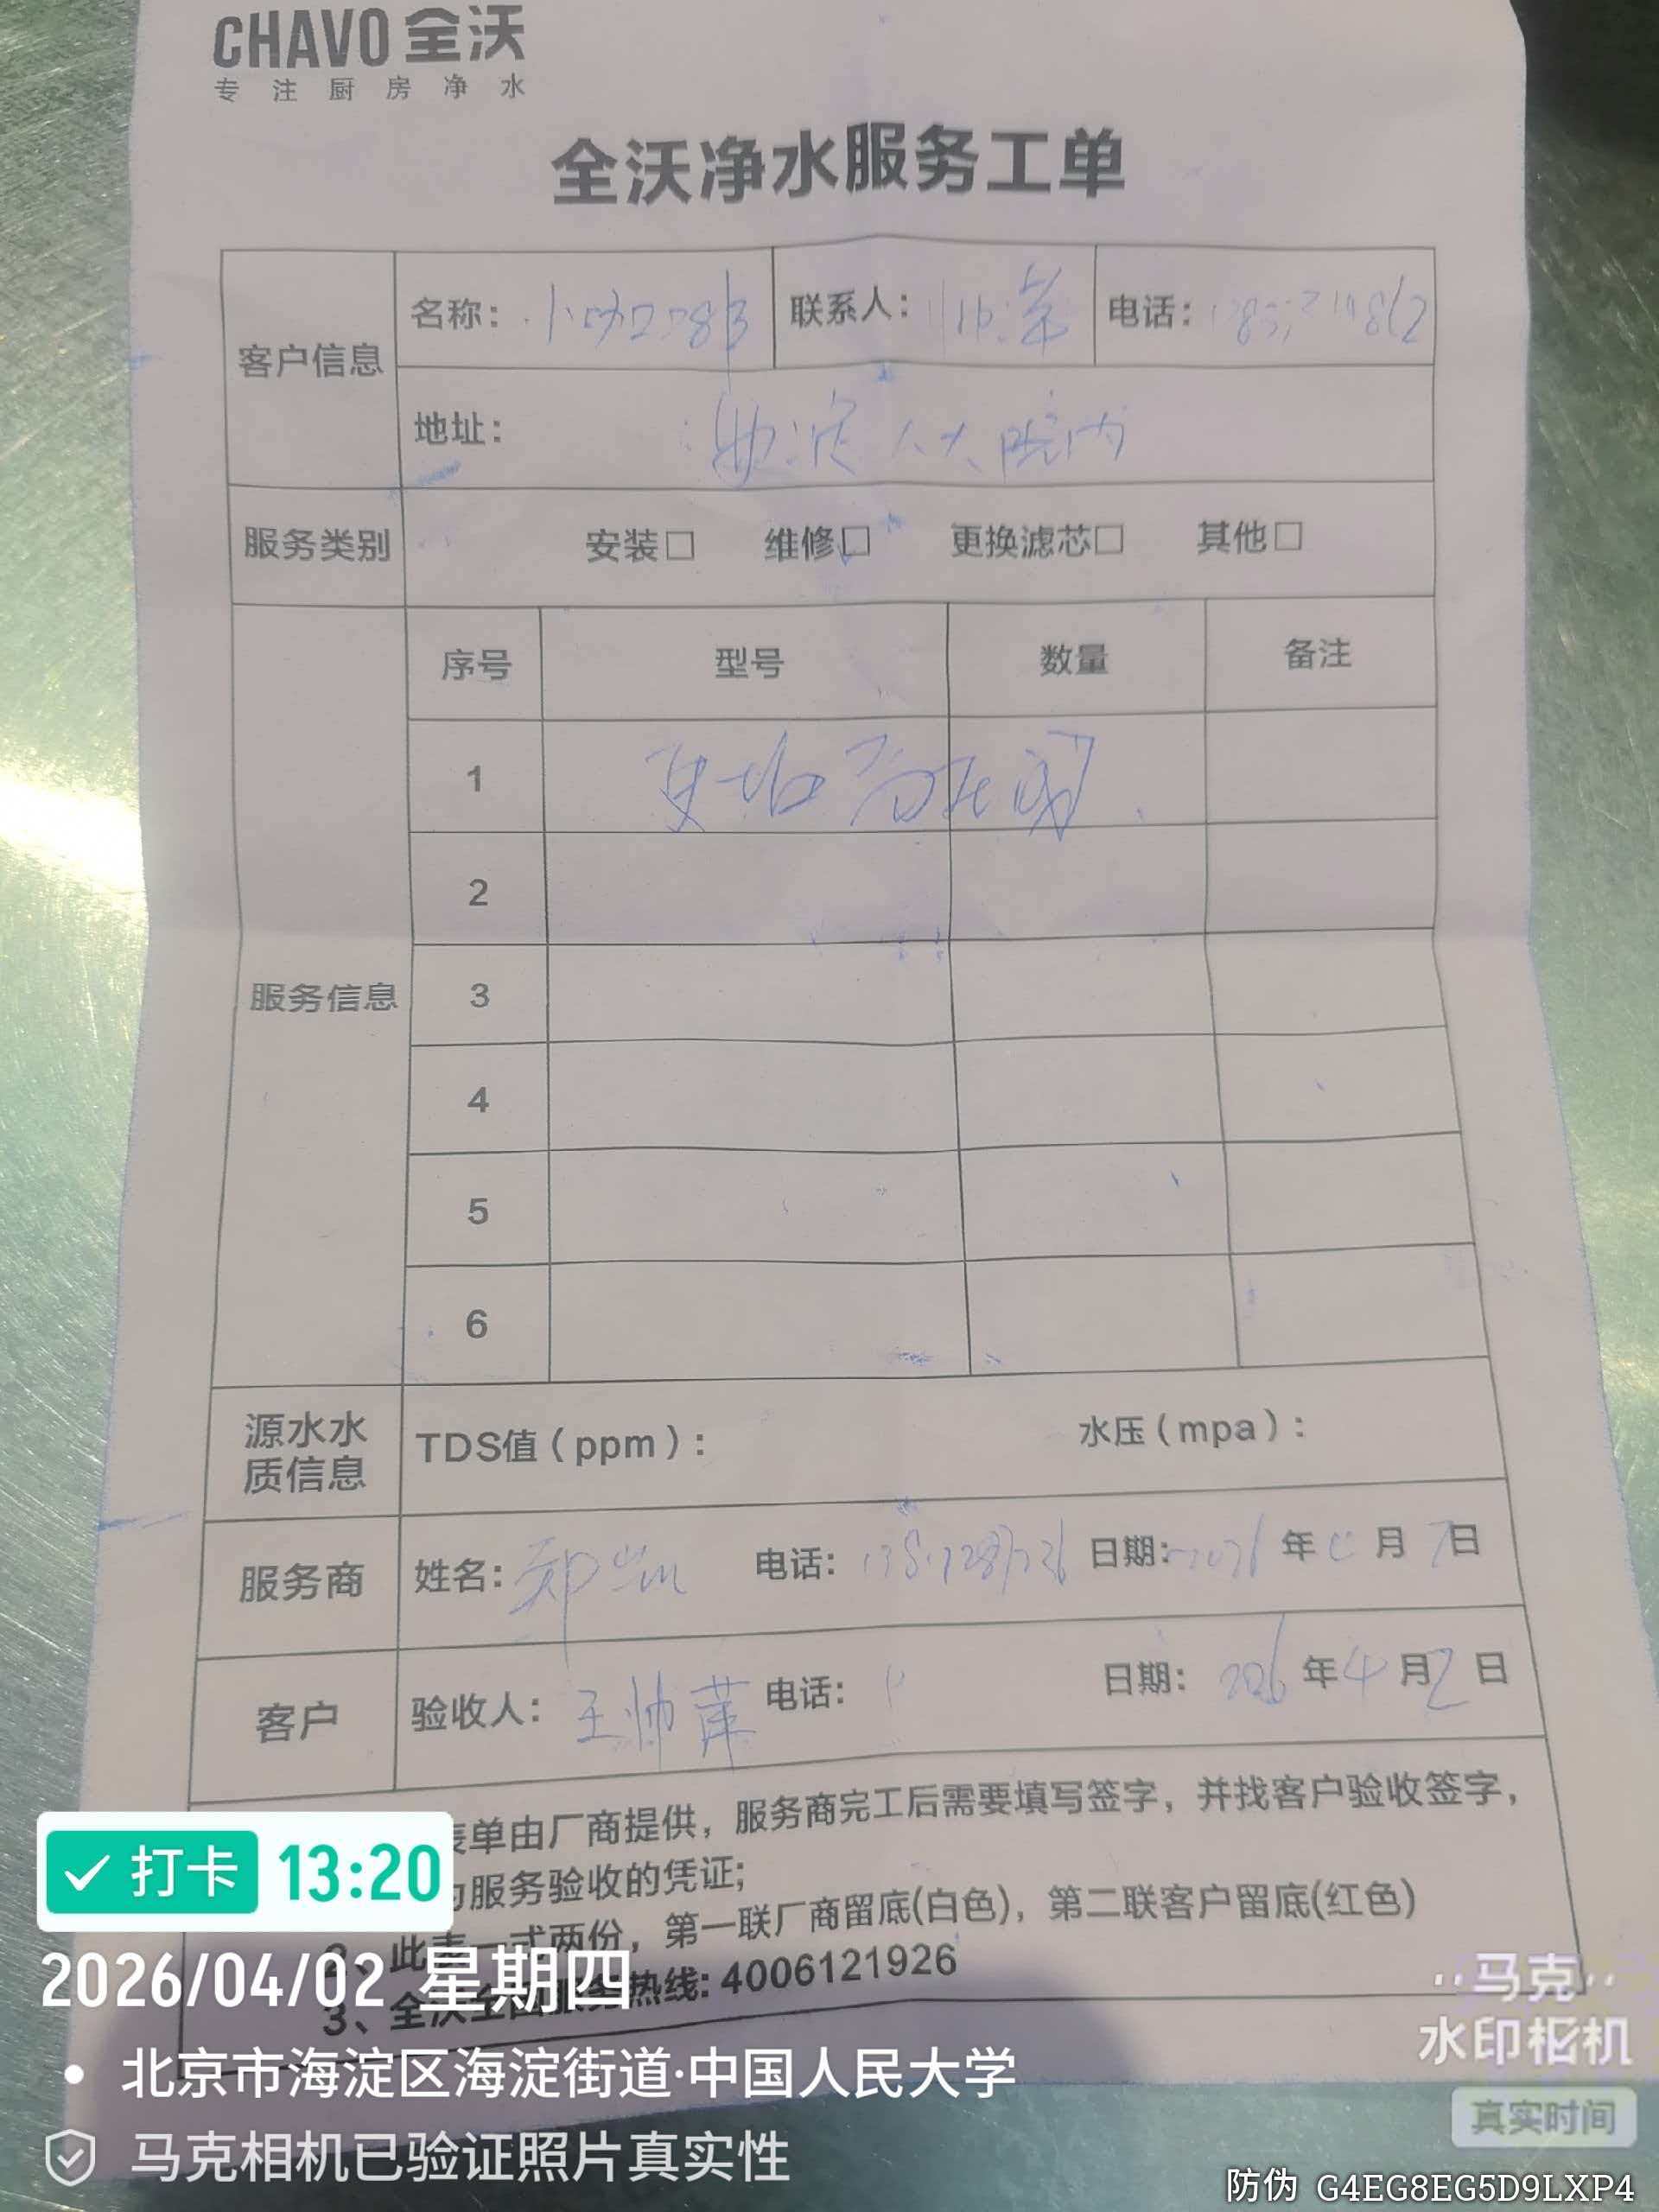 CHAVO 全沃
专注厨房净水
全沃净水服务工单
客户信息
名称：
联系人：
电话：
地址：海淀人大院内
服务类别 安装□ 维修□ 更换滤芯□ 其他□
服务信息
序号 型号 数量 备注
1
2
3
4
5
6
源水水质信息 TDS值（ppm）： 水压（mpa）：
服务商 姓名：郑凯 电话： 日期： 年 月 日
客户 验收人：王帅苹 电话： 日期：2026年4月2日
表单由厂商提供，服务商完工后需要填写签字，并找客户验收签字，
服务验收的凭证；
2、此表一式两份，第一联厂商留底(白色)，第二联客户留底(红色)
3、全沃全国服务热线：4006121926
打卡 13:20
2026/04/02 星期四
北京市海淀区海淀街道·中国人民大学
马克相机已验证照片真实性
马克
水印相机
真实时间
防伪 G4EG8EG5D9LXP4